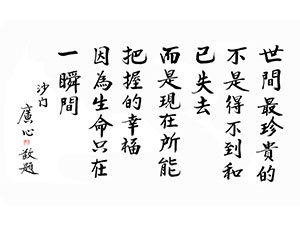 世間最珍貴的
不是得不到和
已失去
而是現在所能
把握的幸福
因為生命只在
一瞬間
沙門
廣心
敬題